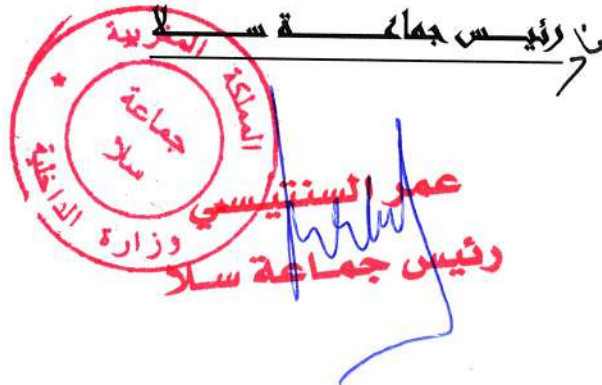 رئيس جماعة سلا
المملكة المغربية
وزارة الداخلية
جماعة
سلا
عمر السنتيسي
رئيس جماعة سلا